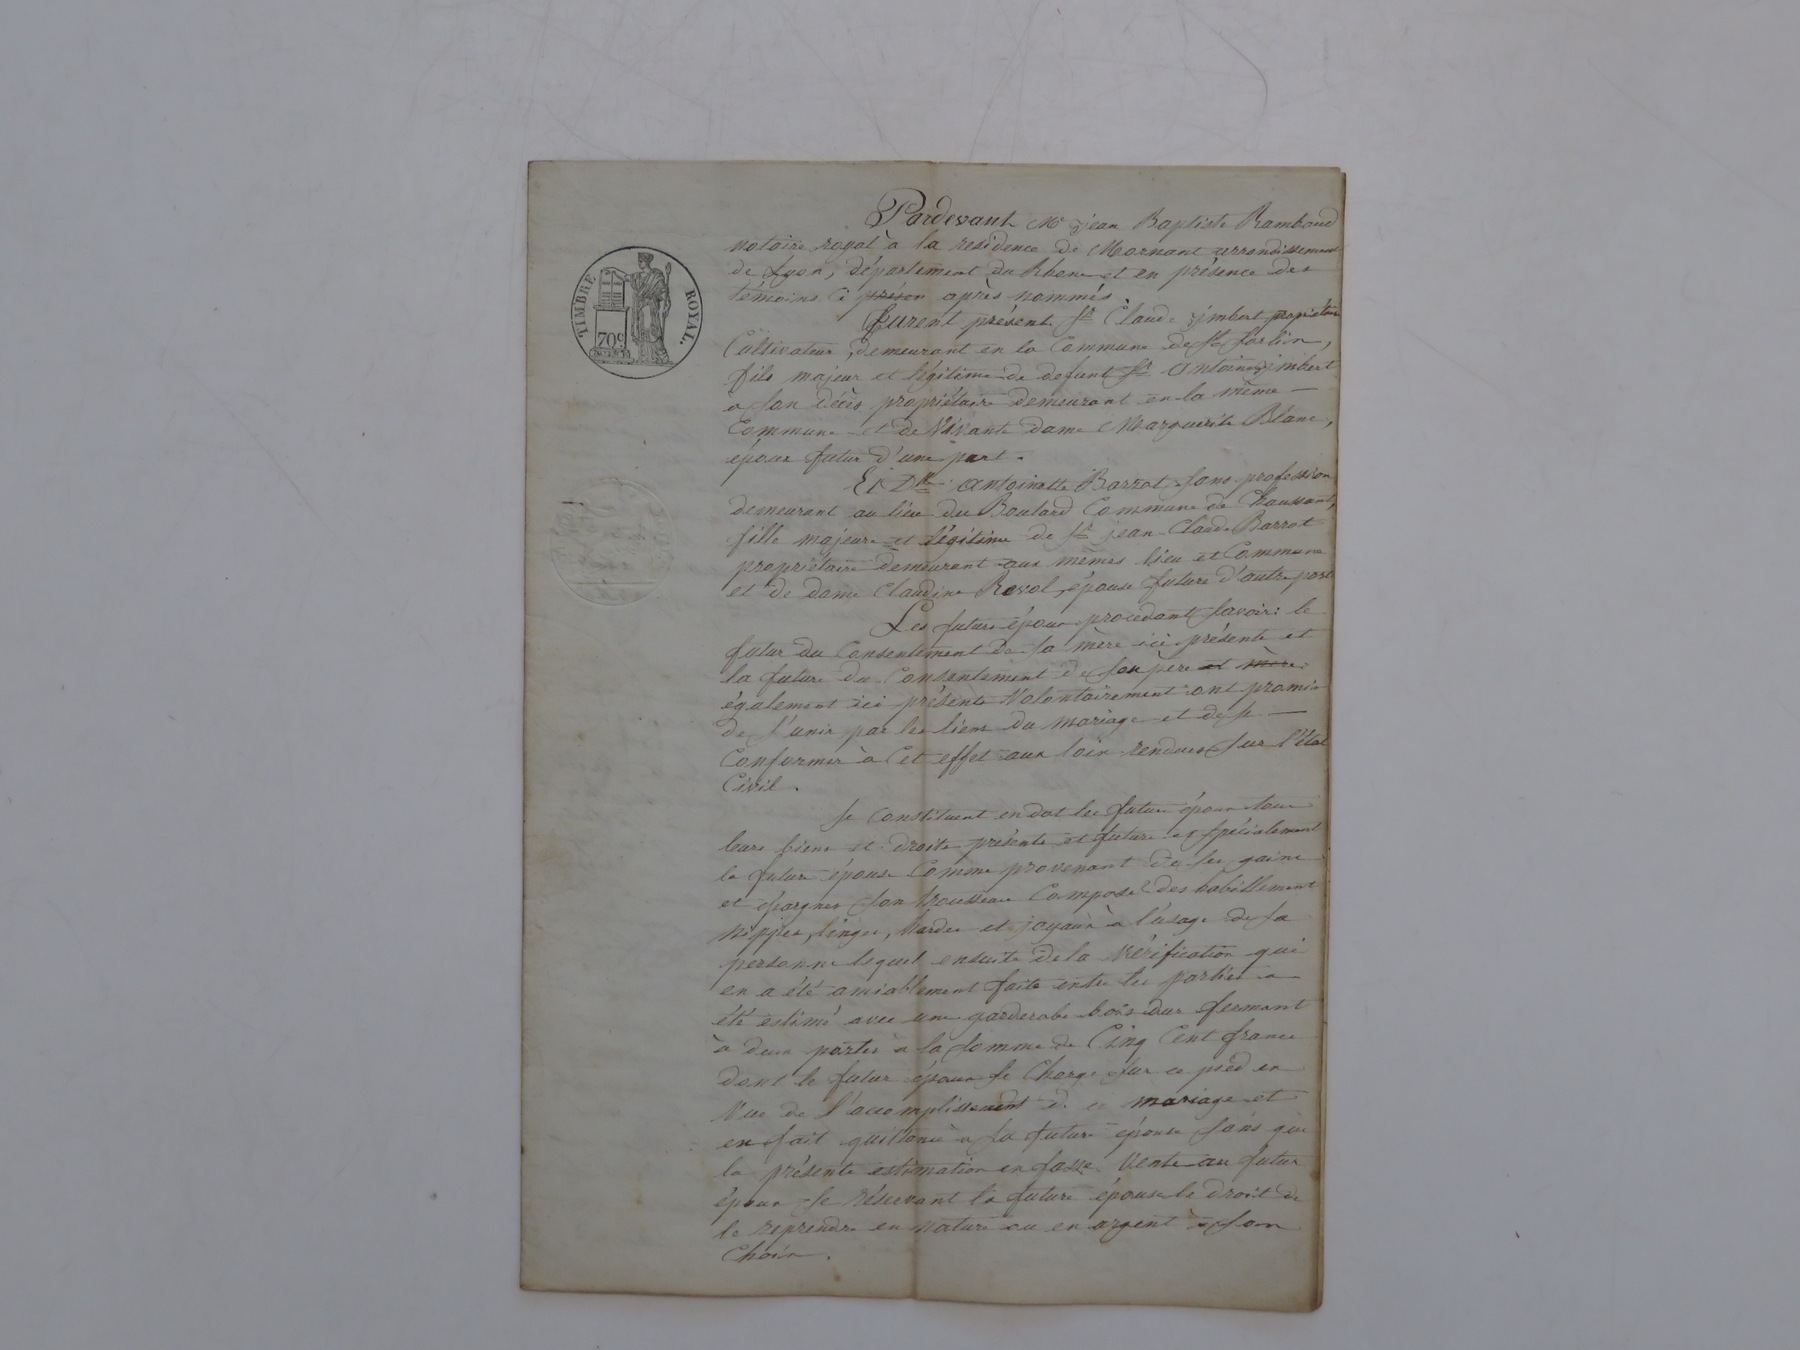 TIMBRE ROYAL.
70c
Pardevant Me jean Baptiste Rambaud
notaire royal à la résidence de Mornant arrondissement
de Lyon, département du Rhône et en présence des
témoins ci après nommés.
furent présent Sr Claude imbert propriétaire
Cultivateur, demeurant en la Commune de
fils majeur et légitime de defunt Sr Antoine imbert
a son décès propriétaire demeurant en la même
Commune et de Vivante dame Marguerite Blanc,
époux futur d'une part.
Et Dlle antoinette Barrot sans profession
demeurant au lieu du Boulard Commune de Chaussant,
fille majeure et légitime de Sr jean Claude Barrot
propriétaire demeurant aux mêmes lieu et Commune
et de dame Claudine Revol, épouse future d'autre part
Les futurs époux procédant savoir: le
futur du Consentement de sa mère ici présente et
la future du Consentement de son père et mère
également ici présents Volontairement ont promis
de s'unir par les liens du mariage et de se
Conformer à Cet effet aux loix rendues sur l'état
Civil.
Se Constituent en dot les futurs époux tous
leurs biens et droits présents et futurs et spécialement
la future épouse Comme provenant de ses gains
et épargnes son trousseau Composé des habillements
nippes, linges, hardes et joyaux à l'usage de sa
personne lequel ensuite de la Vérification qui
en a été amiablement faite entre les parties a
été estimé avec une garderobe bois dur fermant
à deux portes a la somme de Cinq Cent francs
dont le futur époux se Charge sur ce pied en
Vue de l'accomplissement de ce mariage et
en fait quittance a la future épouse sans que
la présente estimation en fasse Vente au futur
époux se réservant la future épouse le droit de
le reprendre en nature ou en argent à son
Choix.